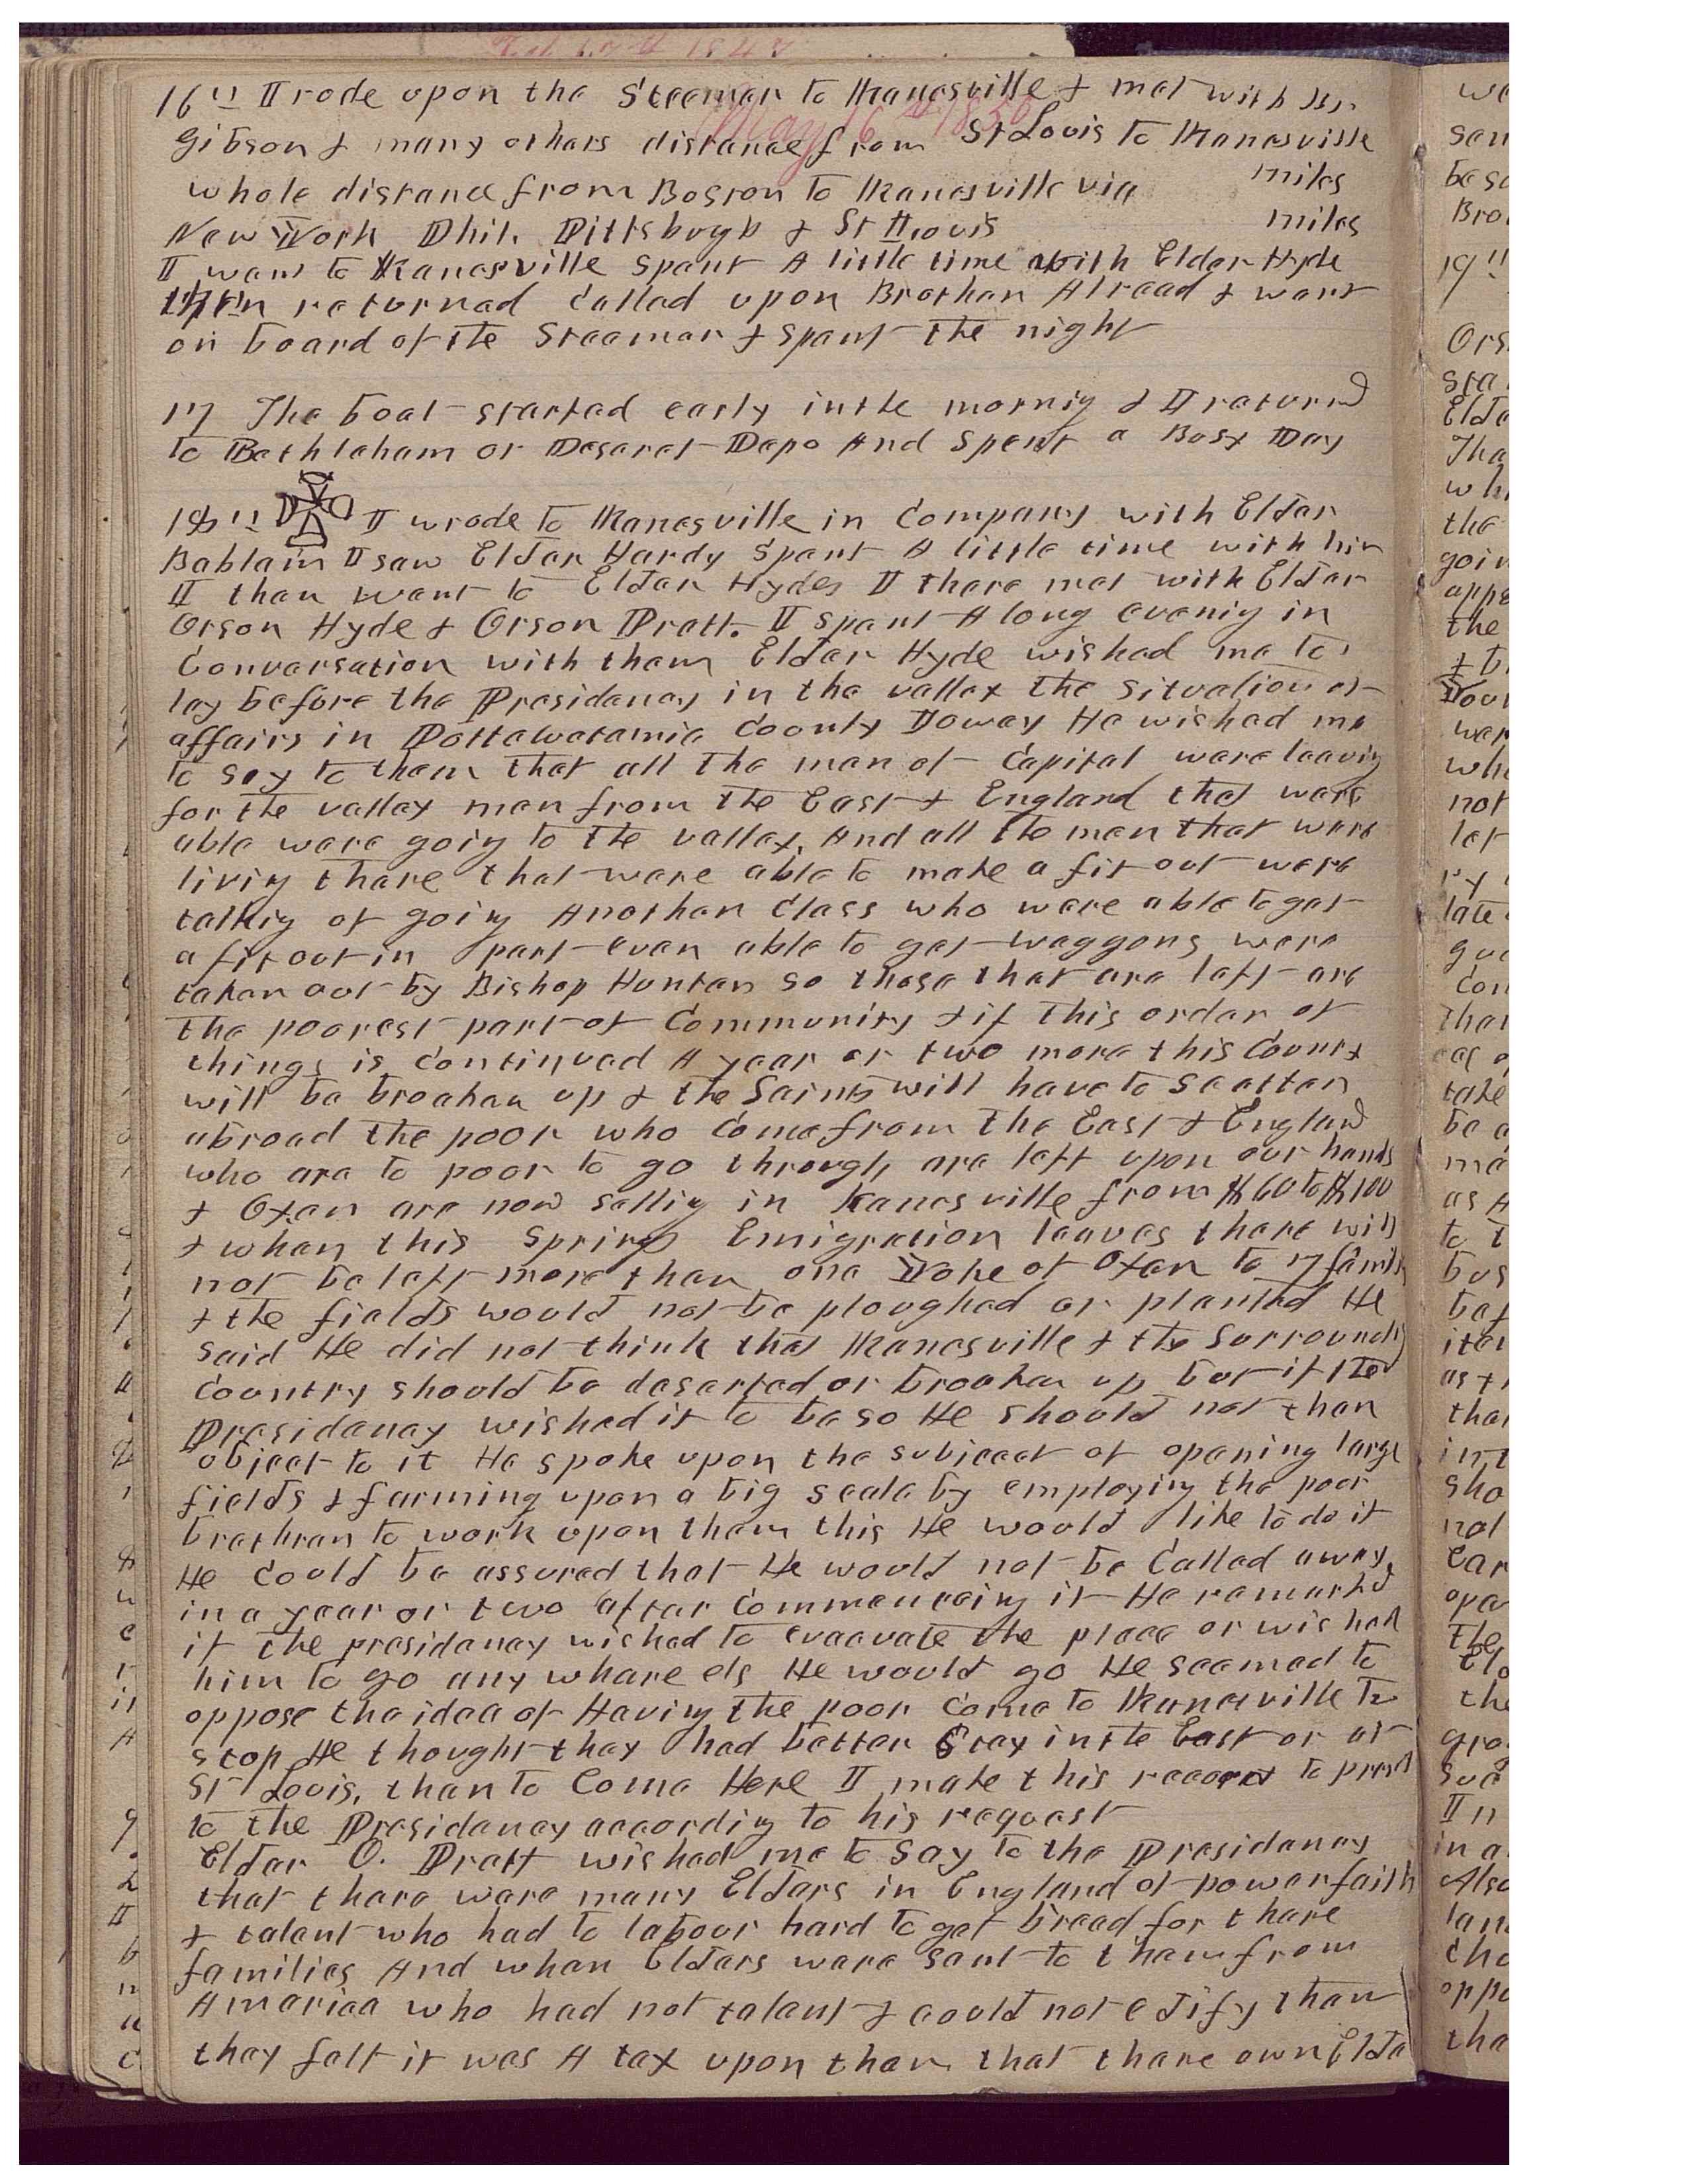 May 16th 1850
16th I rode upon the Steemer to Kanesville & met with Br.
Gibson & many others distance from St Louis to Kanesville
miles
whole distance from Boston to Kanesville via
New York Phil. Pittsburgh & St Louis miles
I went to Kanesville spent A little time with Elder Hyde
then returned Called upon Brother Alread & went
on board of the Steemer & spent the night
17 The boat started early in the mornig & I returnd
to Bethleham or Deseret Depo And spent a Busy Day
18th I wrode to Kanesville in Company with Elder
Bablam I saw Elder Hardy Spent A little time with him
I then went to Elder Hydes I there met with Elder
Orson Hyde & Orson Pratt. I spent A long evenig in
Conversation with them Elder Hyde wished me to
lay before the Presidency in the valley the situation of
affairs in Pottawatamie County Ioway He wished me
to say to them that all the men of Capital were leavig
for the valley men from the East & England that were
able were goig to the valley, And all the men that were
livig there that were able to make a fit out were
talkig of goig Another Class who were able to get
a fit out in part even able to get waggons were
taken out by Bishop Hunter so those that are left are
the poorest part of Community & if this order of
things is continued A year or two more this County
will be broaken up & the Saints will have to scatter
abroad the poor who Come from the East & England
who are to poor to go through are left upon our hands
& Oxen are now sellig in Kanesville from $60 to $100
& when this Spring Emigration leaves there will
not be left more than one Yoke of Oxen to 7 family
& the fields would not be ploughed or planted He
said He did not think that Kanesville & the Surroundig
Country should be deserted or broaken up but if the
Presidency wished it to be so He should not then
object to it He spoke upon the subject of opening large
fields & farming upon a big scale by employing the poor
brethren to work upon them this He would like to do if
He Could be assured that He would not be Called away
in a year or two after Commenceing it He remarkd
if the presidency wished to evacuate the place or wished
him to go any whare els He would go He seemed to
oppose the idea of Having the poor Come to Kanesville to
stop He thought they had better Stay in the East or at
St Louis, than to Come Here I make this record to presnt
to the Presidency accordig to his request
Elder O. Pratt wished me to Say to the Presidency
that there were many Elders in England of power faith
& talent who had to labour hard to get bread for there
families And when Elders were sent to them from
America who had not talent & could not edify them
they felt it was A tax upon them that there own Elde